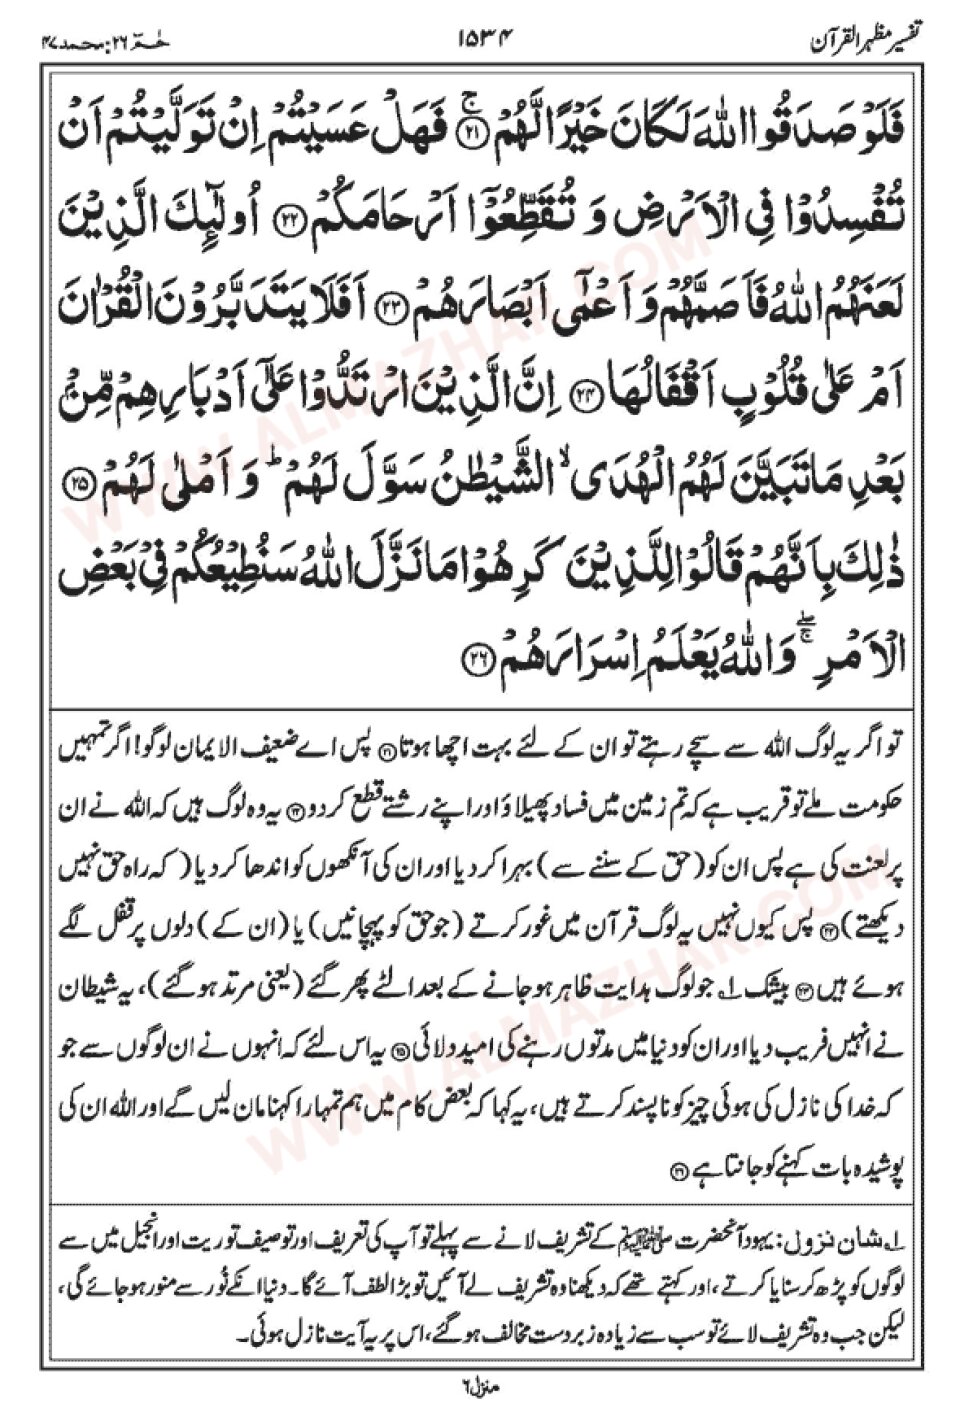 تفسیر مظہر القرآن
۱۵۳۴
حٰمٓ ۲۶: محمد ۴۷
فَلَوْ صَدَقُوا اللهَ لَكَانَ خَيْرًا لَّهُمْ ۚ ﴿۲۱﴾ فَهَلْ عَسَيْتُمْ اِنْ تَوَلَّيْتُمْ اَنْ
تُفْسِدُوْا فِى الْاَرْضِ وَ تُقَطِّعُوْٓا اَرْحَامَكُمْ ﴿۲۲﴾ اُولٰٓئِكَ الَّذِيْنَ
لَعَنَهُمُ اللهُ فَاَصَمَّهُمْ وَ اَعْمٰٓى اَبْصَارَهُمْ ﴿۲۳﴾ اَفَلَا يَتَدَبَّرُوْنَ الْقُرْاٰنَ
اَمْ عَلٰى قُلُوْبٍ اَقْفَالُهَا ﴿۲۴﴾ اِنَّ الَّذِيْنَ ارْتَدُّوْا عَلٰٓى اَدْبَارِهِمْ مِّنْۢ
بَعْدِ مَا تَبَيَّنَ لَهُمُ الْهُدَى ۙ الشَّيْطٰنُ سَوَّلَ لَهُمْ ؕ وَ اَمْلٰى لَهُمْ ﴿۲۵﴾
ذٰلِكَ بِاَنَّهُمْ قَالُوْا لِلَّذِيْنَ كَرِهُوْا مَا نَزَّلَ اللهُ سَنُطِيْعُكُمْ فِىْ بَعْضِ
الْاَمْرِ ۚۖ وَاللهُ يَعْلَمُ اِسْرَارَهُمْ ﴿۲۶﴾
تو اگر یہ لوگ اللہ سے سچے رہتے تو ان کے لئے بہت اچھا ہوتا ﴿۲۱﴾ پس اے ضعیف الایمان لوگو! اگر تمہیں
حکومت ملے تو قریب ہے کہ تم زمین میں فساد پھیلاؤ اور اپنے رشتے قطع کر دو ﴿۲۲﴾ یہ وہ لوگ ہیں کہ اللہ نے ان
پر لعنت کی ہے پس ان کو (حق کے سننے سے) بہرا کر دیا اور ان کی آنکھوں کو اندھا کر دیا (کہ راہ حق نہیں
دیکھتے) ﴿۲۳﴾ پس کیوں نہیں یہ لوگ قرآن میں غور کرتے (جو حق کو پہچانیں) یا (ان کے) دلوں پر قفل لگے
ہوئے ہیں ﴿۲۴﴾ بیشک ۱؎ جو لوگ ہدایت ظاہر ہو جانے کے بعد الٹے پھر گئے (یعنی مرتد ہو گئے)، یہ شیطان
نے انہیں فریب دیا اور ان کو دنیا میں مدتوں رہنے کی امید دلائی ﴿۲۵﴾ یہ اس لئے کہ انہوں نے ان لوگوں سے جو
کہ خدا کی نازل کی ہوئی چیز کو ناپسند کرتے ہیں، یہ کہا کہ بعض کام میں ہم تمہارا کہنا مان لیں گے اور اللہ ان کی
پوشیدہ بات کہنے کو جانتا ہے ﴿۲۶﴾
۱؎ شان نزول: یہود آنحضرت ﷺ کے تشریف لانے سے پہلے تو آپ کی تعریف اور توصیف توریت اور انجیل میں سے
لوگوں کو پڑھ کر سنایا کرتے، اور کہتے تھے کہ دیکھنا وہ تشریف لے آئیں تو بڑا لطف آئے گا۔ دنیا انکے نُور سے منور ہو جائے گی،
لیکن جب وہ تشریف لائے تو سب سے زیادہ زبردست مخالف ہو گئے، اس پر یہ آیت نازل ہوئی۔
منزل ۶
WWW.ALMAZHAR.COM
WWW.ALMAZHAR.COM